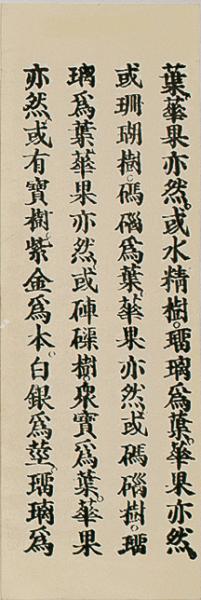 葉華果亦然或水精樹瑠璃爲葉華果亦然
或珊瑚樹碼碯爲葉華果亦然或碼碯樹瑠
璃爲葉華果亦然或硨磲樹衆寶爲葉華果
亦然或有寶樹紫金爲本白銀爲莖瑠璃爲